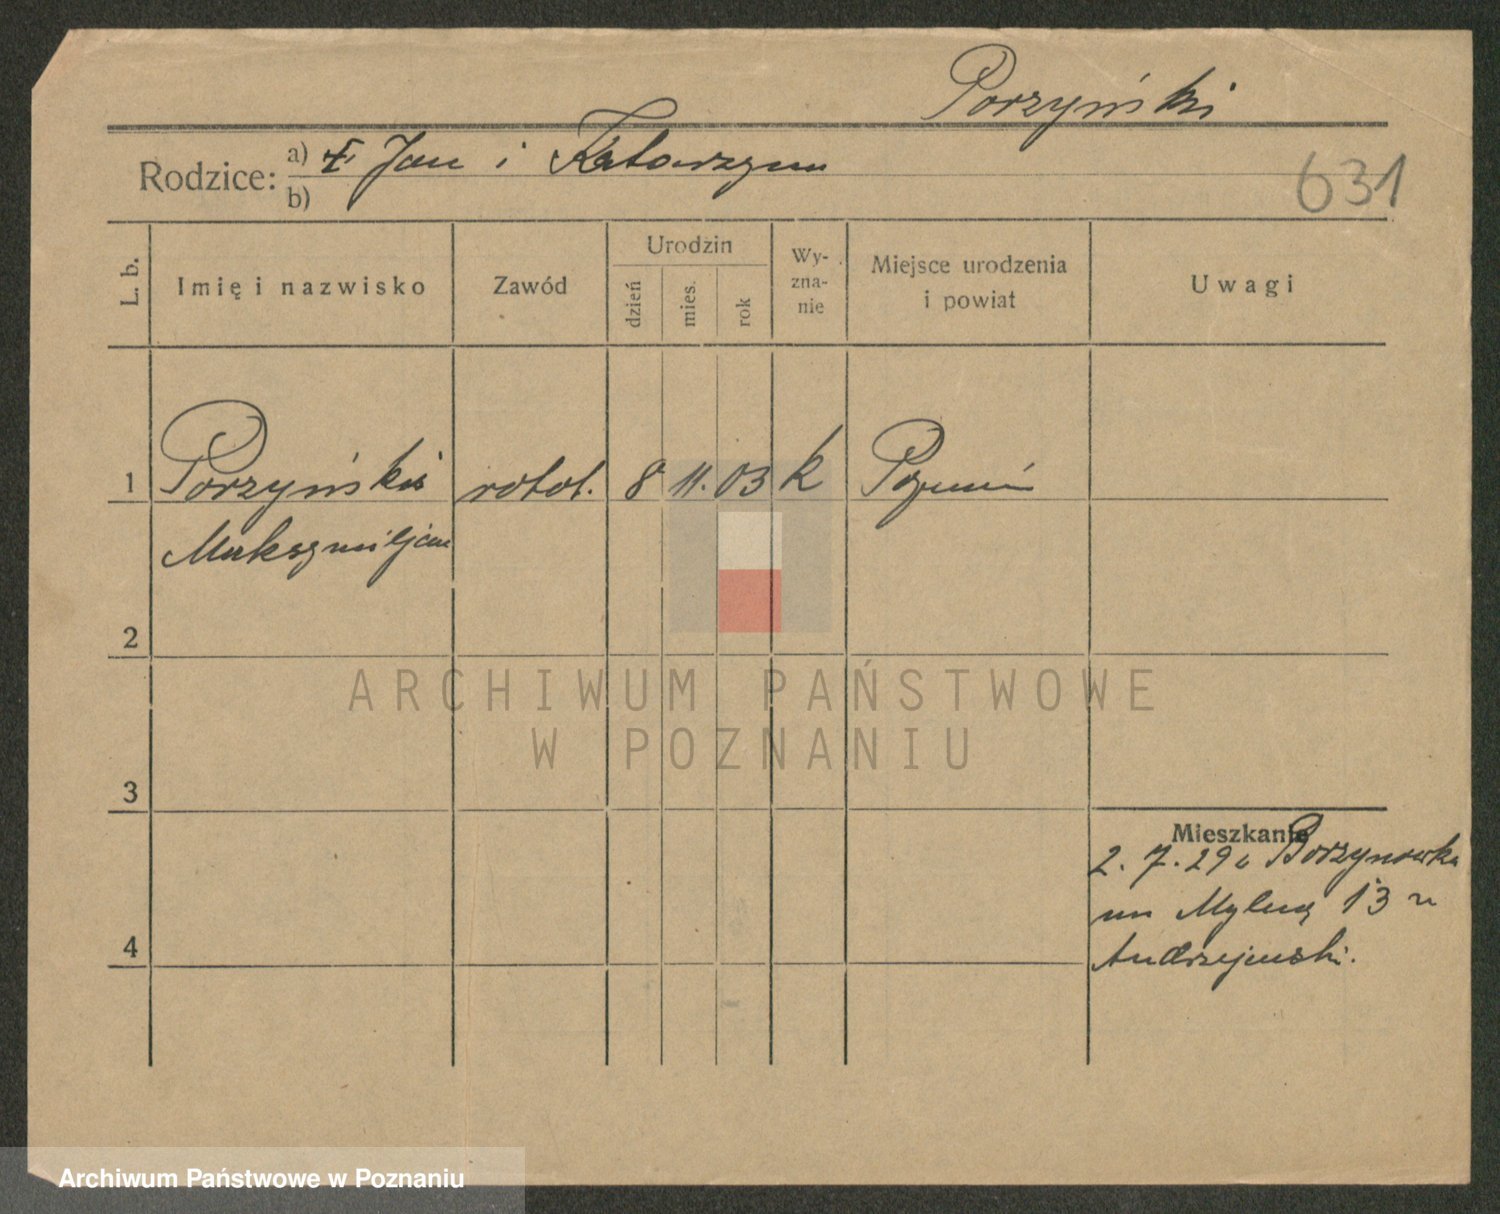 Porzyński
Rodzice: a) Jan i Katarzyna
b)
631
L. b.
Imię i nazwisko
Zawód
Urodzin
dzień
mies.
rok
Wy-
zna-
nie
Miejsce urodzenia
i powiat
Uwagi
1 Porzyński robot. 8 11. 03 k Poznań
Maksymiljan
2
3
4
Mieszkanie
2. 7. 29
13
Andrzejewski.
ARCHIWUM PAŃSTWOWE
W POZNANIU
Archiwum Państwowe w Poznaniu